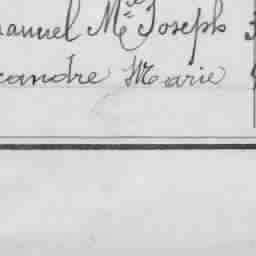 anuel Mie Joseph
candre Marie